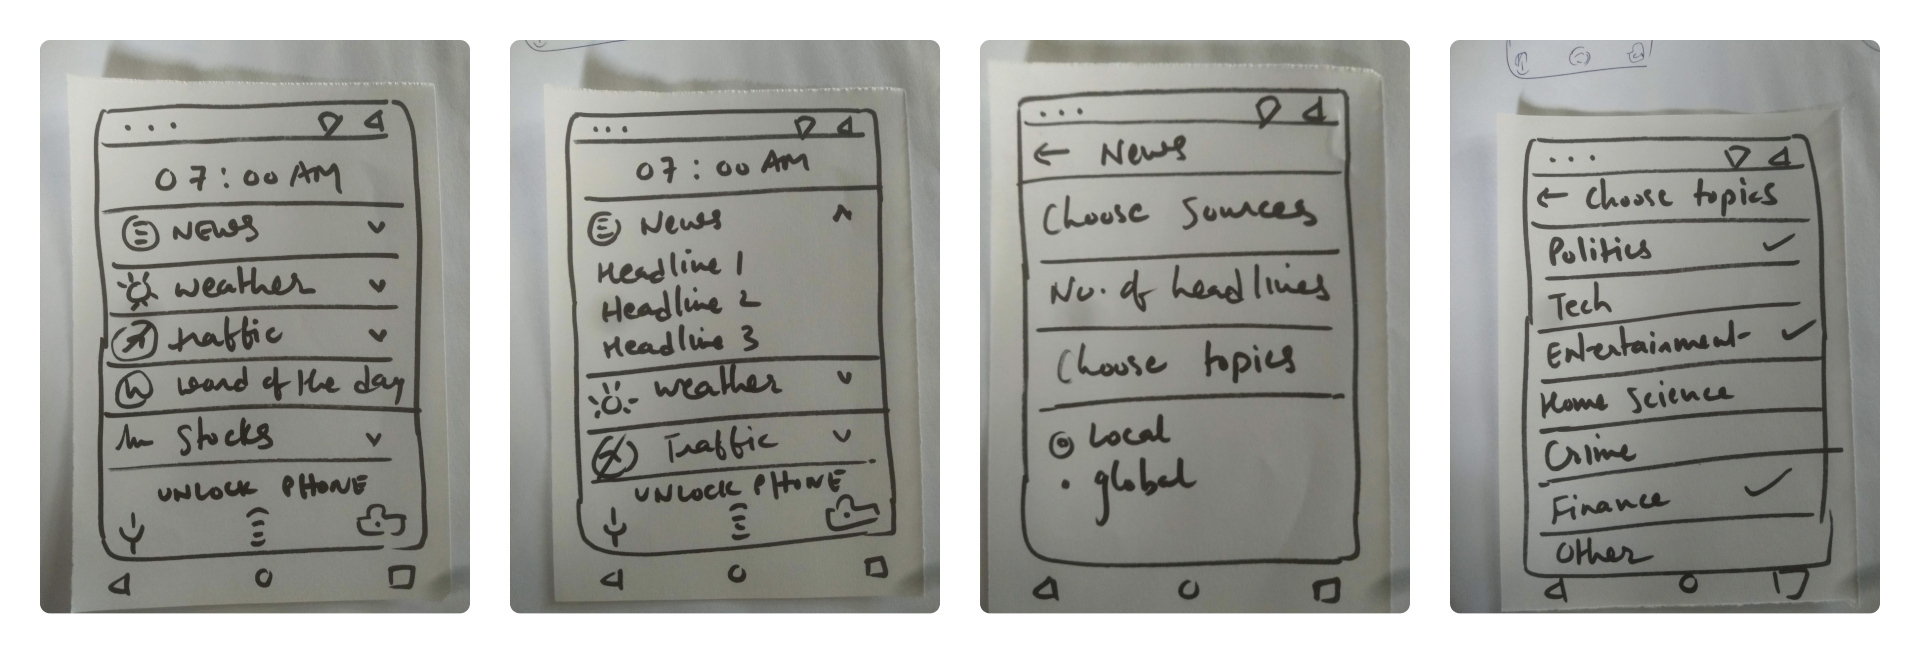 07:00 AM
NEWS
weather
traffic
word of the day
Stocks
UNLOCK PHONE
07:00 AM
News
Headline 1
Headline 2
Headline 3
weather
Traffic
UNLOCK PHONE
← News
Choose Sources
No. of headlines
Choose topics
Local
global
← Choose topics
Politics ✓
Tech
Entertainment ✓
Home Science
Crime
Finance ✓
Other